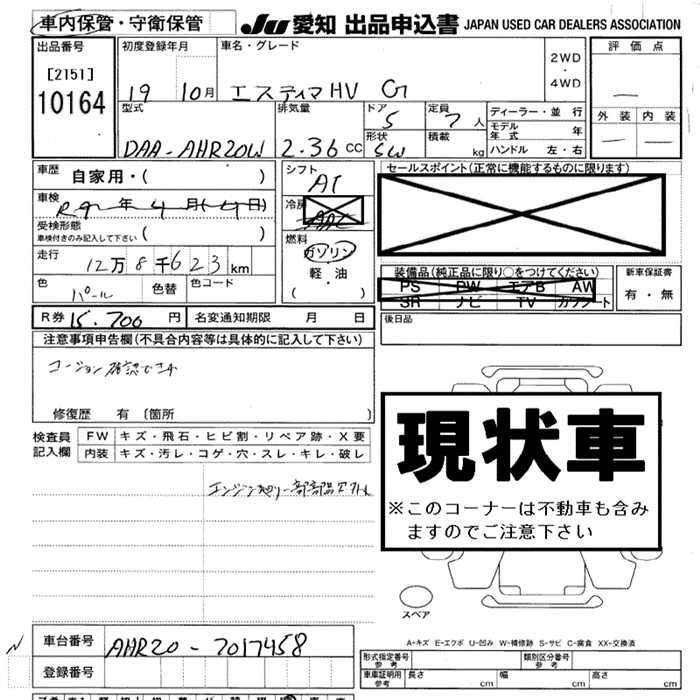 車内保管・守衛保管
JU 愛知 出品申込書 JAPAN USED CAR DEALERS ASSOCIATION
出品番号 初度登録年月 車名・グレード 2WD・4WD 評価点
[2151]
10164 19 10月 エスティマHV G
外装 内装
型式 排気量 ドア 定員 ディーラー・並行
5 7人 モデル年式 年
DAA-AHR20W 2.36 CC 形状 SW 積載 kg ハンドル 左・右
車歴 自家用・( ) シフト AT セールスポイント(正常に機能するものに限ります)
車検 R 年 4月( 日) 冷房 AAC
受検形態
車検付きのみ記入して下さい ( ) 燃料 ガソリン
走行 12万8千623km 軽・油
( )
装備品(純正品に限り○をつけてください) 新車保証書
PS PW エアB AW
SR ナビ TV カワシート 有・無
色 パール 色替 色コード
R券 15.700円 名変通知期限 月 日 後日品
注意事項申告欄(不具合内容等は具体的に記入して下さい)
コーション確認できず
修復歴 有〔箇所 〕
現状車
※このコーナーは不動車も含み
ますのでご注意下さい
検査員記入欄 FW キズ・飛石・ヒビ割・リペア跡・X要
内装 キズ・汚レ・コゲ・穴・スレ・キレ・破レ
スペア
A-キズ E-エクボ U-凹み W-補修跡 S-サビ C-腐食 XX-交換済
車台番号 AHR20-7017458
登録番号
形式指定番号 参考 類別区分番号 参考
車庫証明用 参考 長さ cm 幅 cm 高さ cm